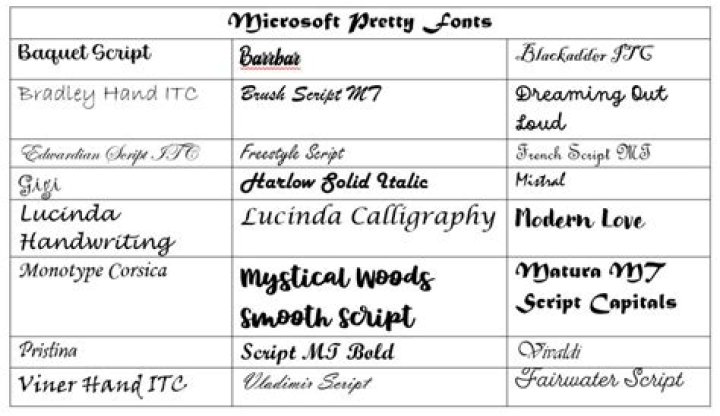 Microsoft Pretty Fonts
Baquet Script
Barrbar
Blackadder ITC
Bradley Hand ITC
Brush Script MT
Dreaming Out
Loud
Edwardian Script ITC
Freestyle Script
French Script MT
Gigi
Harlow Solid Italic
Mistral
Lucinda
Handwriting
Lucinda Calligraphy
Modern Love
Monotype Corsica
Mystical Woods
Smooth Script
Matura MT
Script Capitals
Pristina
Script MT Bold
Vivaldi
Viner Hand ITC
Vladimir Script
Fairwater Script